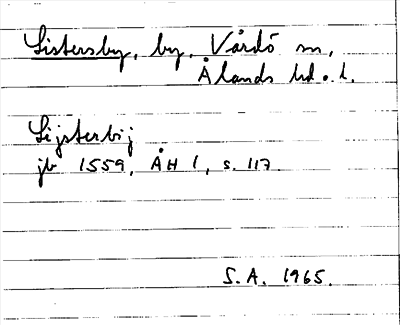 Listersby, by, Vårdö sn,
Ålands hd. o. l.
Lijsterbij
jb 1559, ÅH 1, s. 117.
S.A. 1965.